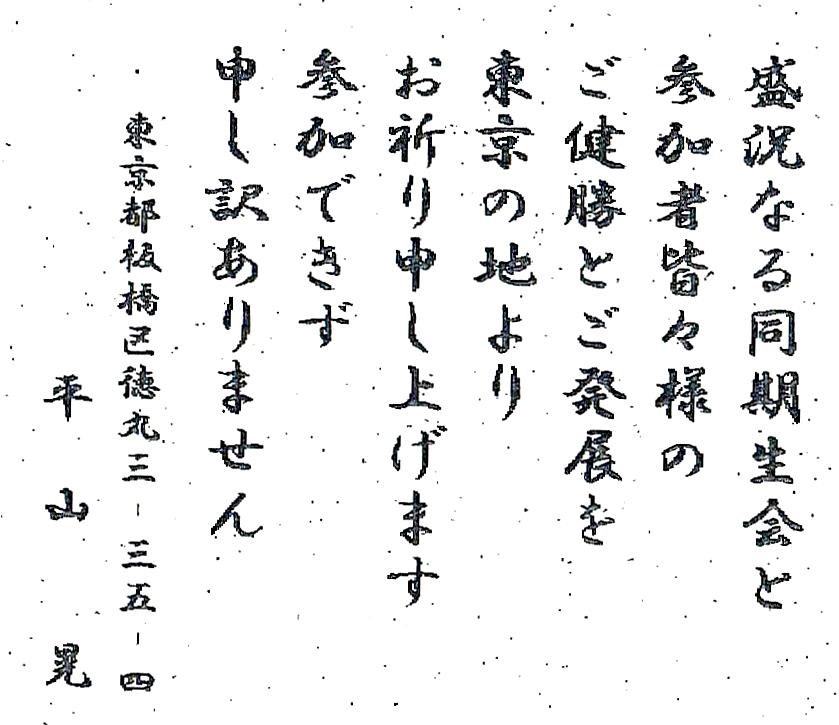 盛況なる同期生会と
参加者皆々様の
ご健勝とご発展を
東京の地より
お祈り申し上げます
参加できず
申し訳ありません
東京都板橋区徳丸三-三五-四
平山晃